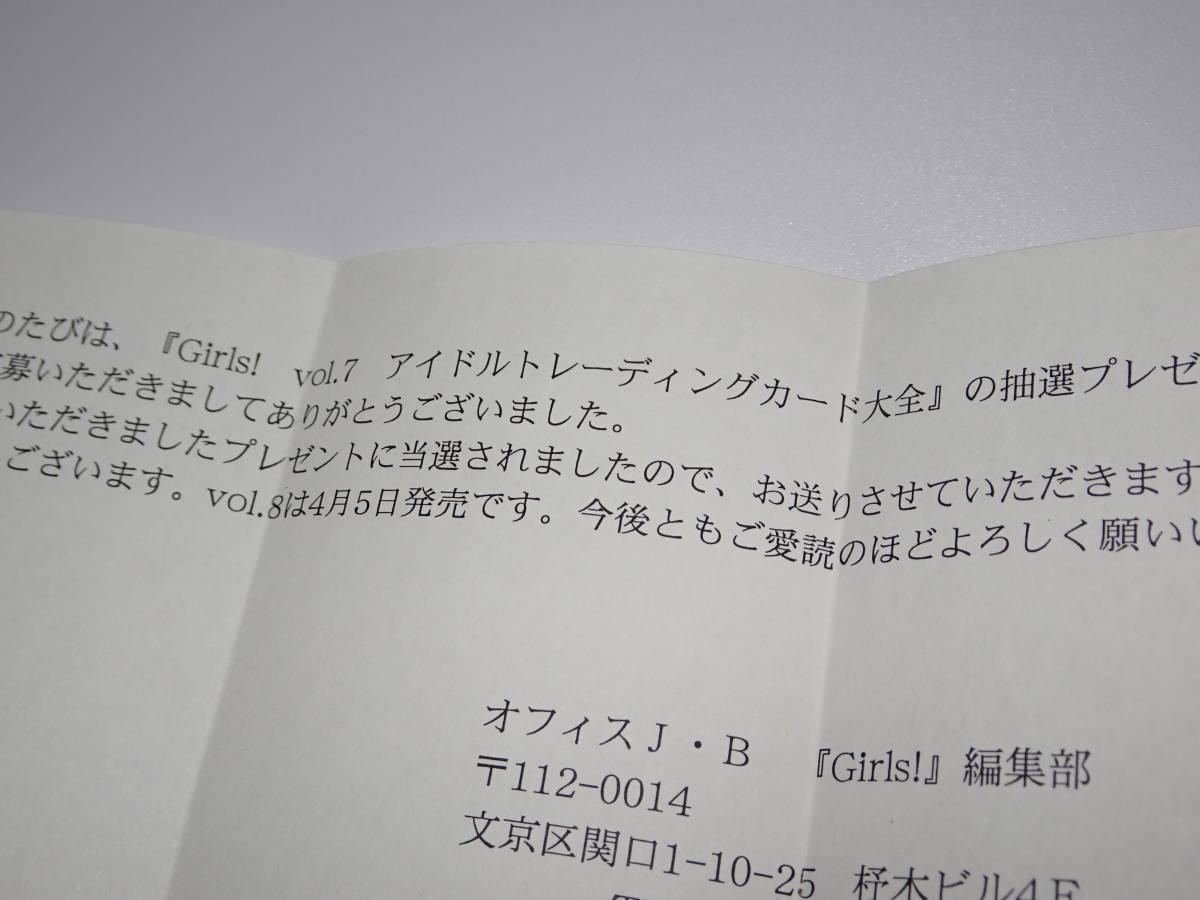 のたびは、『Girls!　vol.7　アイドルトレーディングカード大全』の抽選プレゼ
募いただきましてありがとうございました。
いただきましたプレゼントに当選されましたので、お送りさせていただきます
ございます。vol.8は4月5日発売です。今後ともご愛読のほどよろしく願いい
オフィスＪ・Ｂ　『Girls!』編集部
〒112-0014
文京区関口1-10-25　杼木ビル4Ｆ